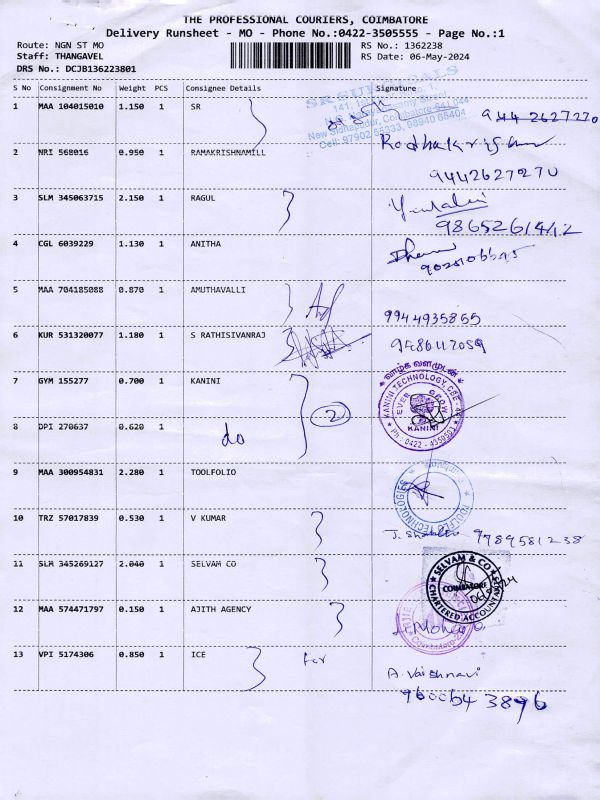 THE PROFESSIONAL COURIERS, COIMBATORE
Delivery Runsheet - MO - Phone No.:0422-3505555 - Page No.:1
Route: NGN ST MO
RS No.: 1362238
Staff: THANGAVEL
RS Date: 06-May-2024
DRS No.: DCJB136223801
S No Consignment No Weight PCS Consignee Details Signature
1 MAA 104015010 1.150 1 SR
SR CHEMICALS
New Sidhapudur, Coimbatore-641 044
Cell: 97902 55933, 98940 65404
944 2627270
2 NRI 568016 0.950 1 RAMAKRISHNAMILL
Radhakrishnan
9442627270
3 SLM 345063715 2.150 1 RAGUL
9865261412
4 CGL 6039229 1.130 1 ANITHA
5 MAA 704185088 0.870 1 AMUTHAVALLI
9944935855
6 KUR 531320077 1.180 1 S RATHISIVANRAJ
7 GYM 155277 0.700 1 KANINI
2
வாழ்க வளமுடன்
KANINI TECHNOLOGY, CBE-44
EVER GROW
KANINI
Ph: 0422 - 4350593
8 DPI 270637 0.620 1
do
9 MAA 300954831 2.280 1 TOOLFOLIO
TOOLFO TECHNOLOGIES
10 TRZ 57017839 0.530 1 V KUMAR
9789581238
11 SLM 345269127 2.040 1 SELVAM CO
SELVAM & CO
COIMBATORE
CHARTERED ACCOUNTANTS
12 MAA 574471797 0.150 1 AJITH AGENCY
13 VPI 5174306 0.850 1 ICE
for
A. Vaishnavi
9600643896